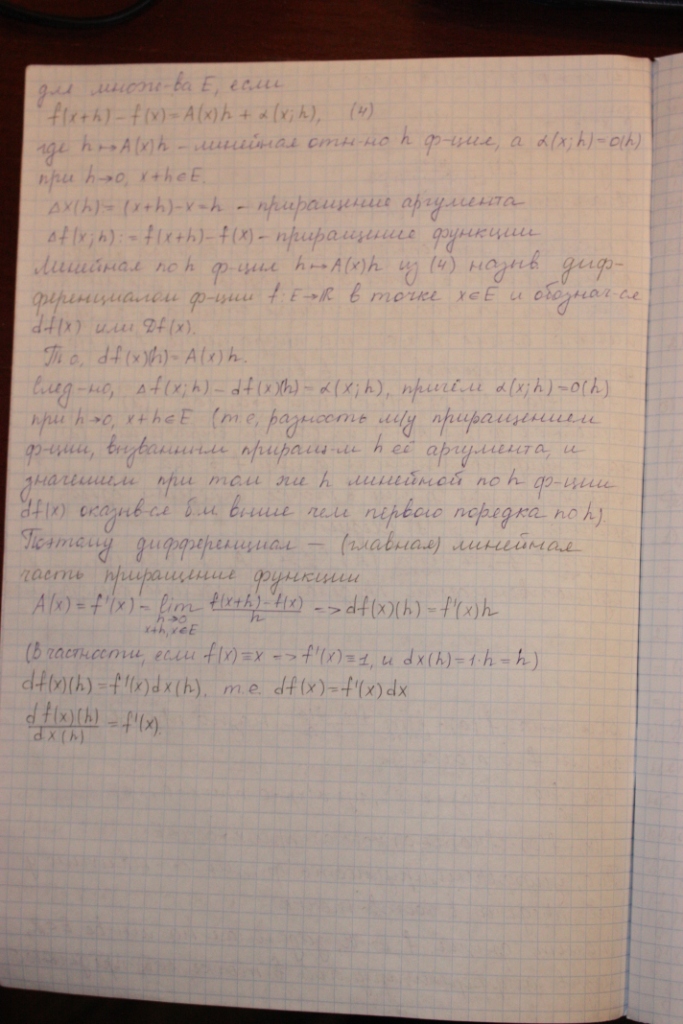 для множ-ва E, если
f(x+h) - f(x) = A(x)h + α(x;h), (4)
где h↦A(x)h - линейная отн-но h ф-ция, а α(x;h)=o(h)
при h→0, x+h∈E.
Δx(h) = (x+h)-x=h - приращение аргумента
Δf(x;h) := f(x+h) - f(x) - приращение функции
Линейная по h ф-ция h↦A(x)h из (4) назыв. диф-
ференциалом ф-ции f:E→ℝ в точке x∈E и обознач-ся
df(x) или Df(x).
Т.о, df(x)(h) = A(x)h.
След-но, Δf(x;h) - df(x)(h) = α(x;h), причём α(x;h)=o(h)
при h→0, x+h∈E (т.е, разность м/у приращением
ф-ции, вызванным приращ-м h её аргумента, и
значением при том же h линейной по h ф-ции
df(x) оказыв-ся б.м выше чем первого порядка по h)
Поэтому дифференциал — (главная) линейная
часть приращение функции
A(x) = f'(x) = lim_{h→0, x+h,x∈E} (f(x+h)-f(x))/h => df(x)(h) = f'(x)h
(В частности, если f(x)≡x => f'(x)≡1, и dx(h)=1·h=h)
df(x)(h) = f'(x)dx(h), т.е. df(x) = f'(x)dx
df(x)(h)/dx(h) = f'(x).